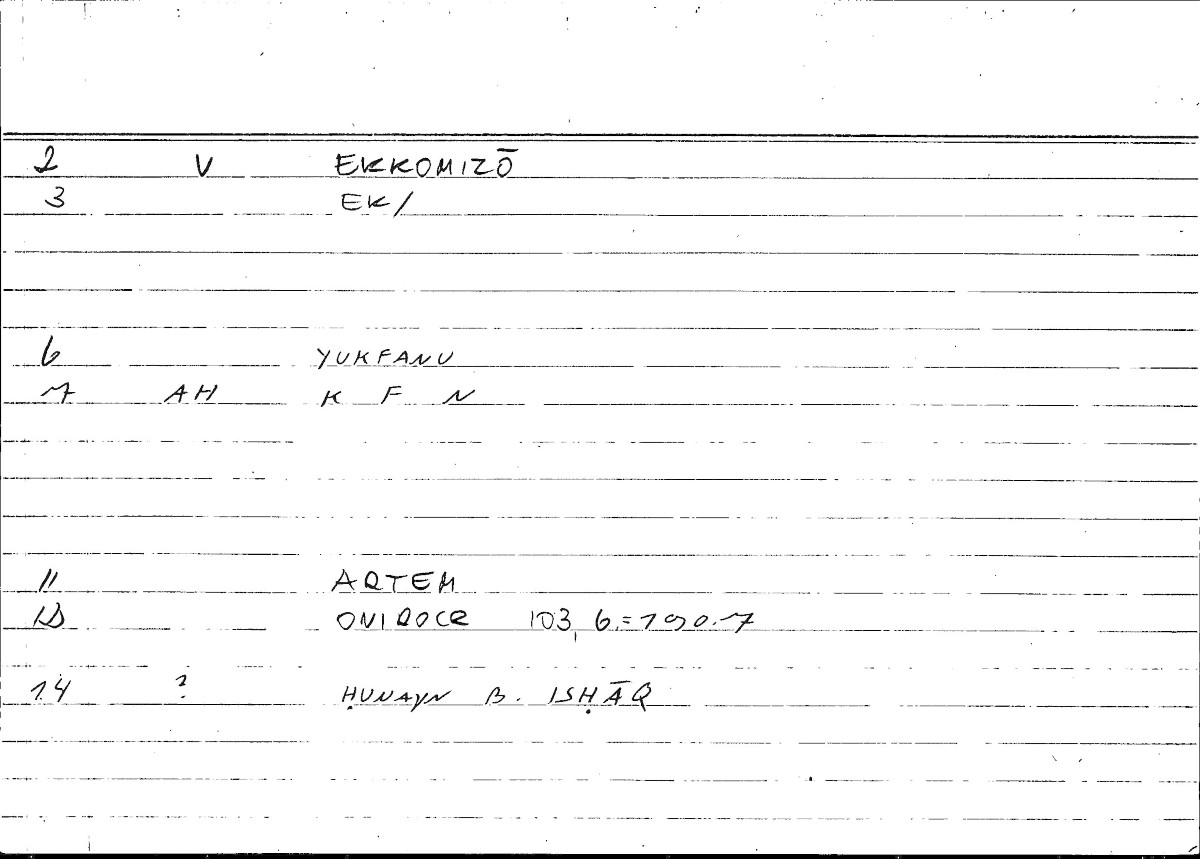 2 V EKKOMIZŌ
3 EK/
6 YUKFANU
7 AH K F N
11 ARTEM
12 ONIROCR 103, 6.=190.7
14 ? ḤUNAYN B. ISḤĀQ